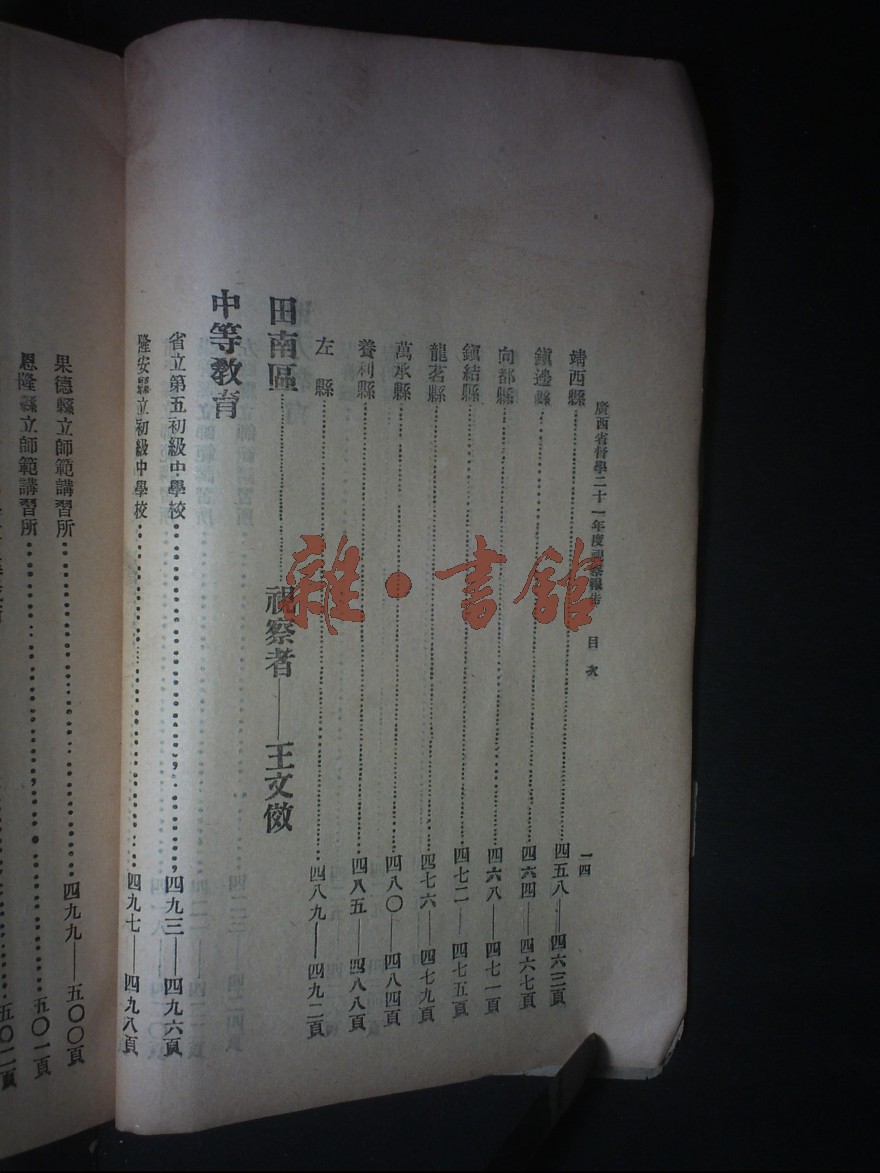 廣西省督學二十一年度視察報告 目次 一四
靖西縣……四五八——四六三頁
鎭邊縣……四六四——四六七頁
向都縣……四六八——四七一頁
鎭結縣……四七二——四七五頁
龍茗縣……四七六——四七九頁
萬承縣……四八〇——四八四頁
養利縣……四八五——四八八頁
左縣……四八九——四九二頁
田南區……視察者——王文儆
中等教育
省立第五初級中學校……四九三——四九六頁
隆安縣立初級中學校……四九七——四九八頁
果德縣立師範講習所……四九九——五〇〇頁
恩隆縣立師範講習所……五〇一頁
五〇二頁
雜·書館